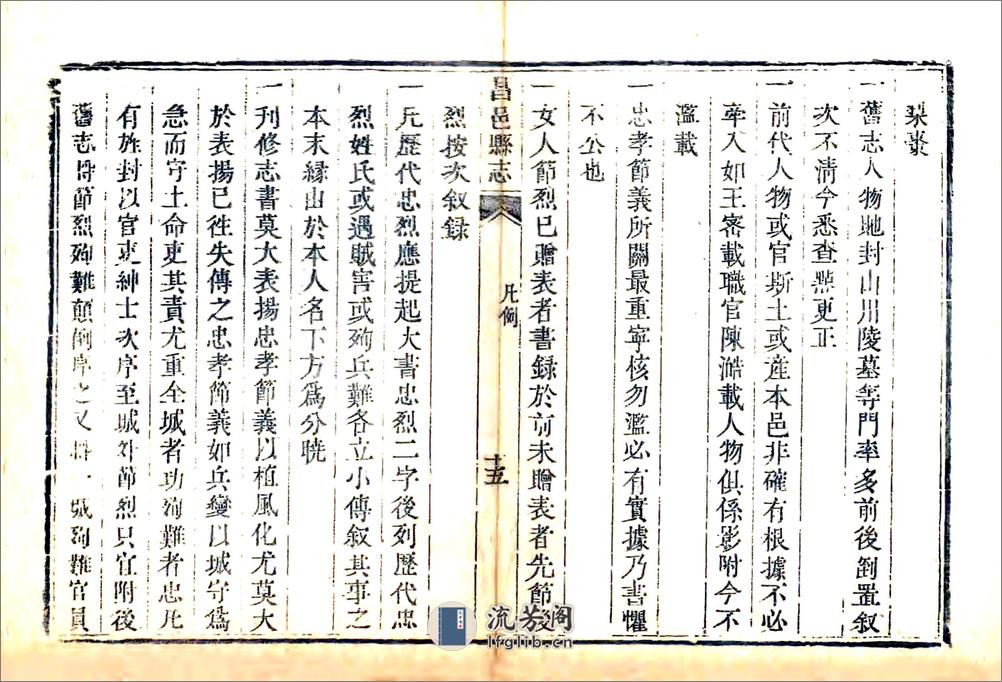 梨棗
一舊志人物地封山川陵墓等門率多前後倒置叙
次不清今悉查照更正
一前代人物或官斯土或產本邑非確有根據不必
牽入如王審載職官陳澔載人物俱係影附今不
濫載
一忠孝節義所關最重寧核勿濫必有實據乃書懼
不公也
一女人節烈已贈表者書録於前未贈表者先節後
烈按次叙録
昌邑縣志
凡例
十五
一凡歷代忠烈應提起大書忠烈二字後列歷代忠
烈姓氏或遇賊害或殉兵難各立小傳叙其事之
本末縁由於本人名下方爲分曉
一刊修志書莫大表揚忠孝節義以植風化尤莫大
於表揚已徃失傳之忠孝節義如兵變以城守爲
急而守土命吏其責尤重全城者功殉難者忠凡
有旌封以官吏紳士次序至城外節烈只宜附後
舊志將節烈殉難顛倒序之又將一城殉難官員
流芳阁
lfglib.cn